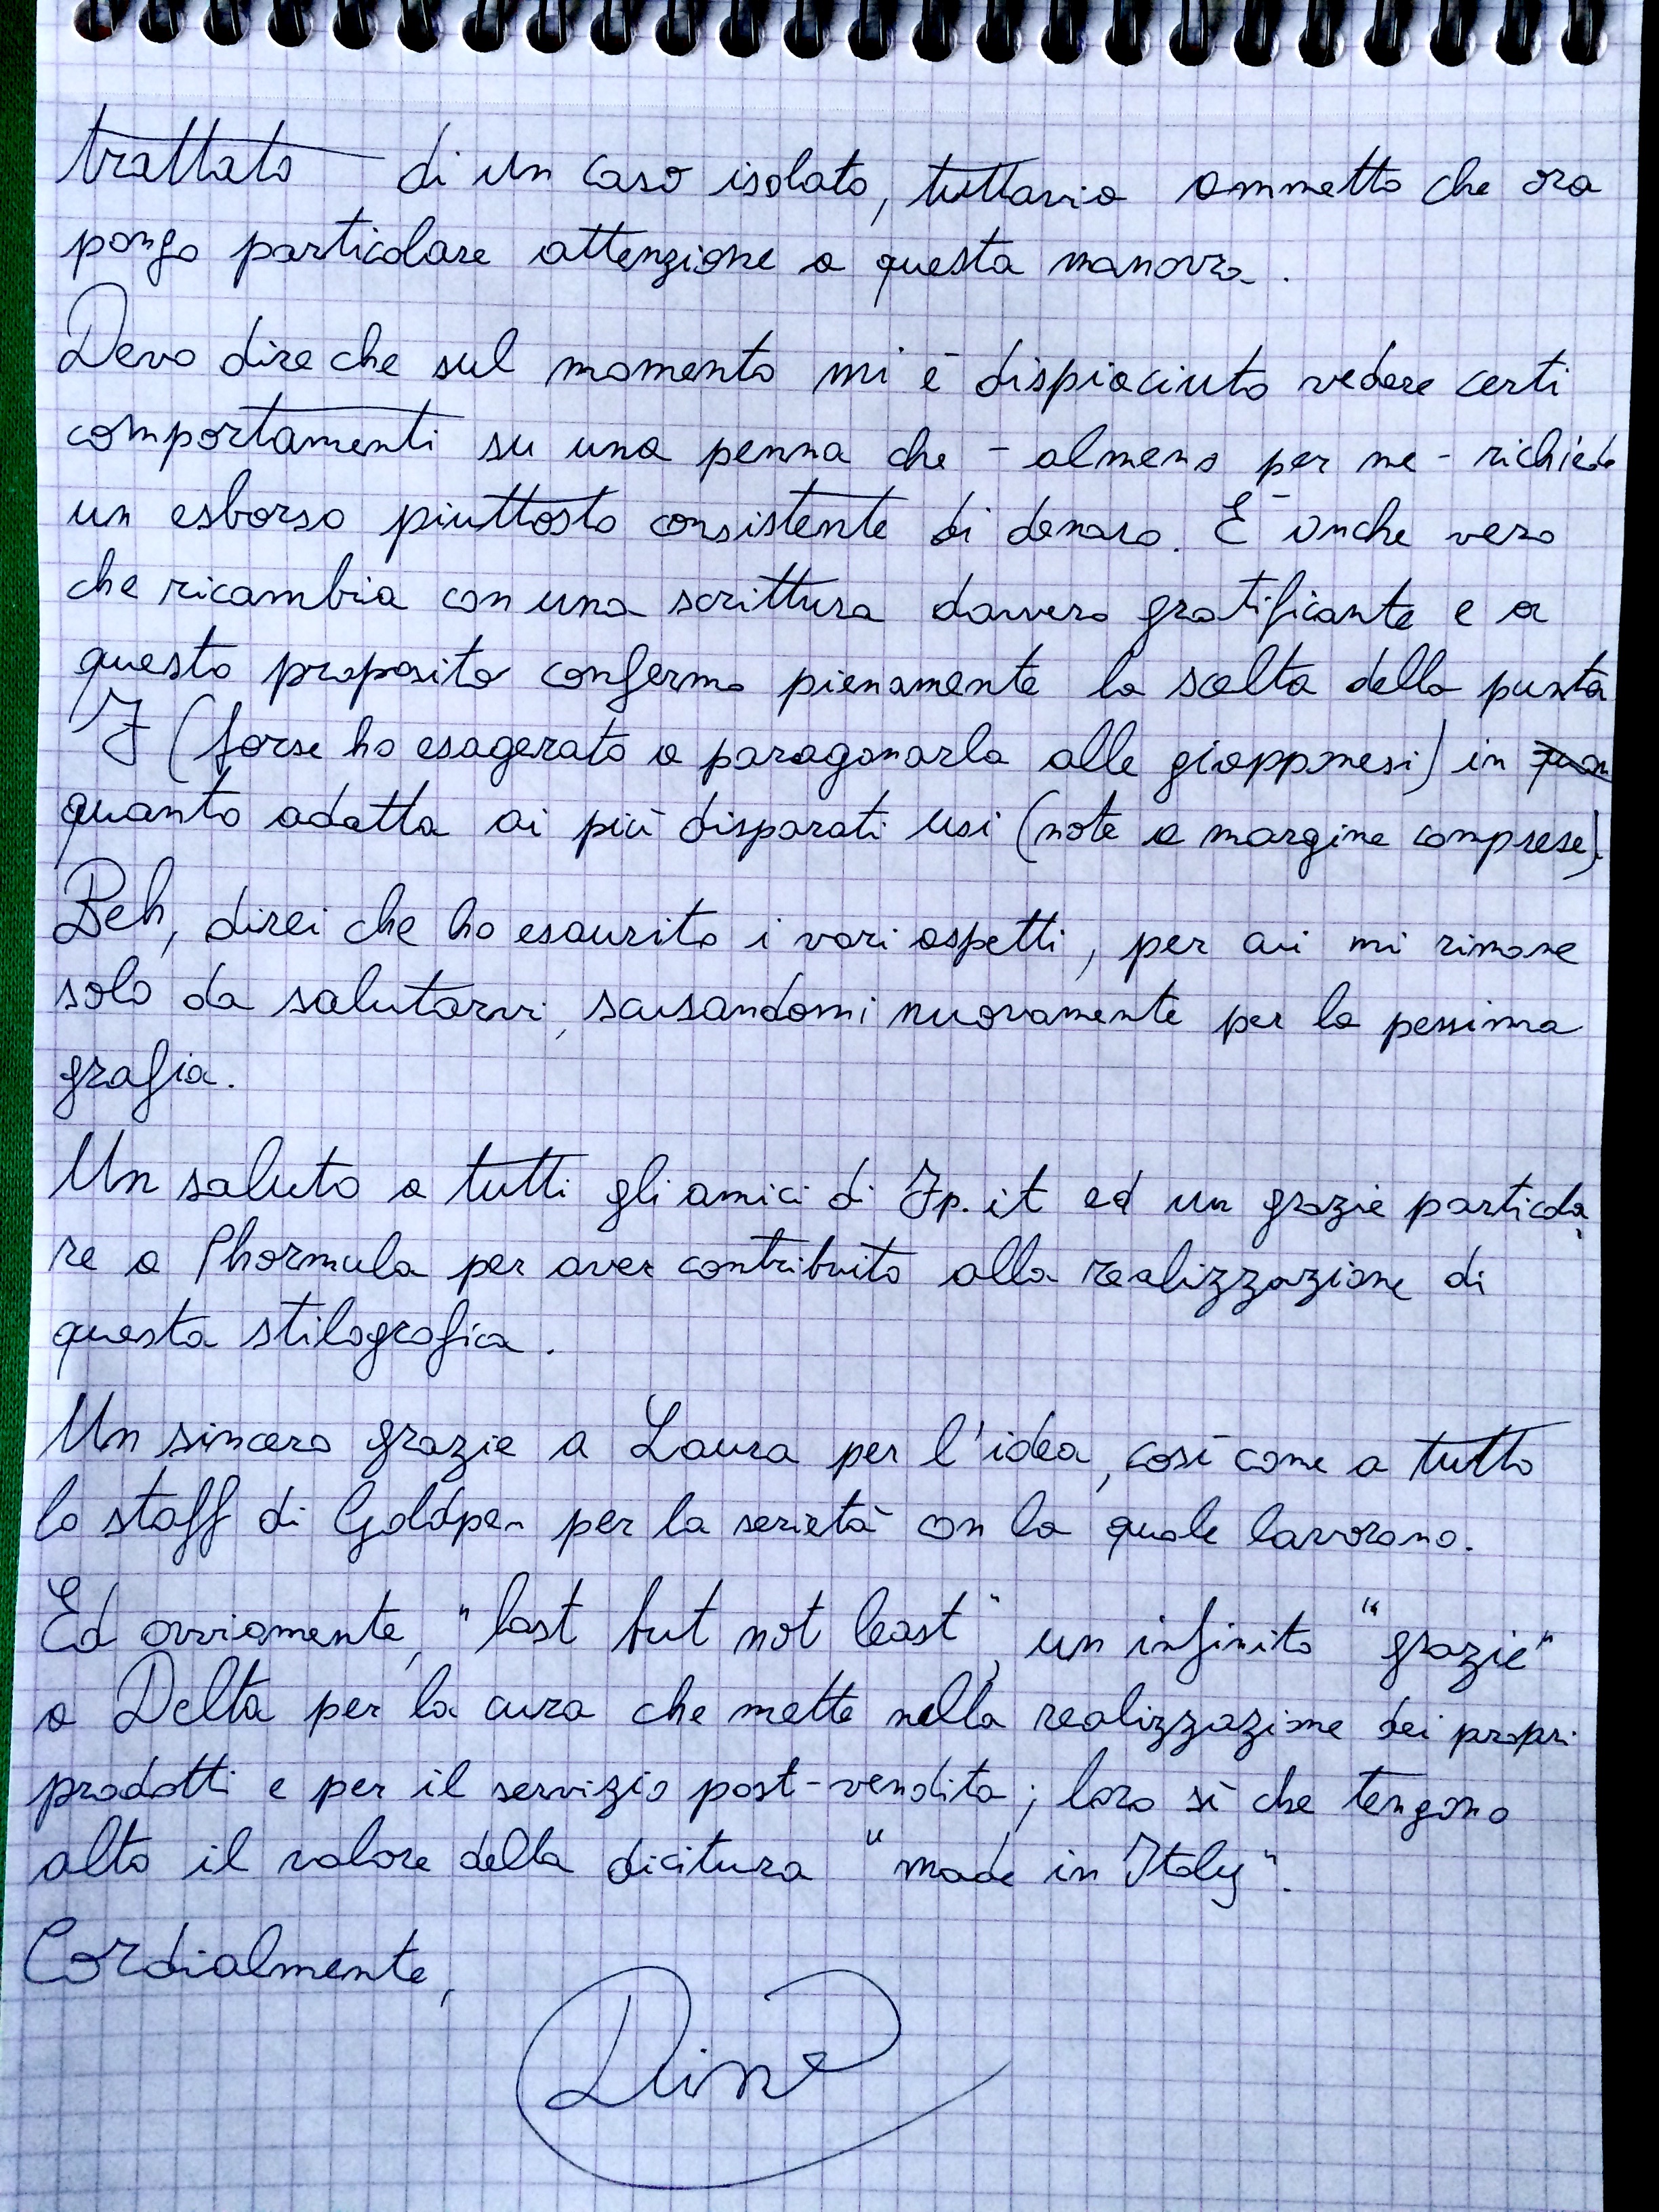 trattato di un caso isolato, tuttavia ammetto che ora
pongo particolare attenzione a questa manovra.
Devo dire che sul momento mi è dispiaciuto vedere certi
comportamenti su una penna che - almeno per me - richiede
un esborso piuttosto consistente di denaro. È anche vero
che ricambia con una scrittura davvero gratificante e a
questo proposito confermo pienamente la scelta della punta
F (forse ho esagerato a paragonarla alle giapponesi) in
quanto adatta ai più disparati usi (note a margine comprese).
Beh, direi che ho esaurito i vari aspetti, per cui mi rimane
solo da salutarvi, scusandomi nuovamente per la pessima
grafia.
Un saluto a tutti gli amici di Fp.it ed un grazie particola
re a Phormula per aver contribuito alla realizzazione di
questa stilografica.
Un sincero grazie a Laura per l'idea, così come a tutto
lo staff di Goldpen per la serietà con la quale lavorano.
Ed ovviamente, "last but not least", un infinito "grazie"
a Delta per la cura che mette nella realizzazione dei propri
prodotti e per il servizio post-vendita; loro sì che tengono
alto il valore della dicitura "made in Italy".
Cordialmente,
Dino